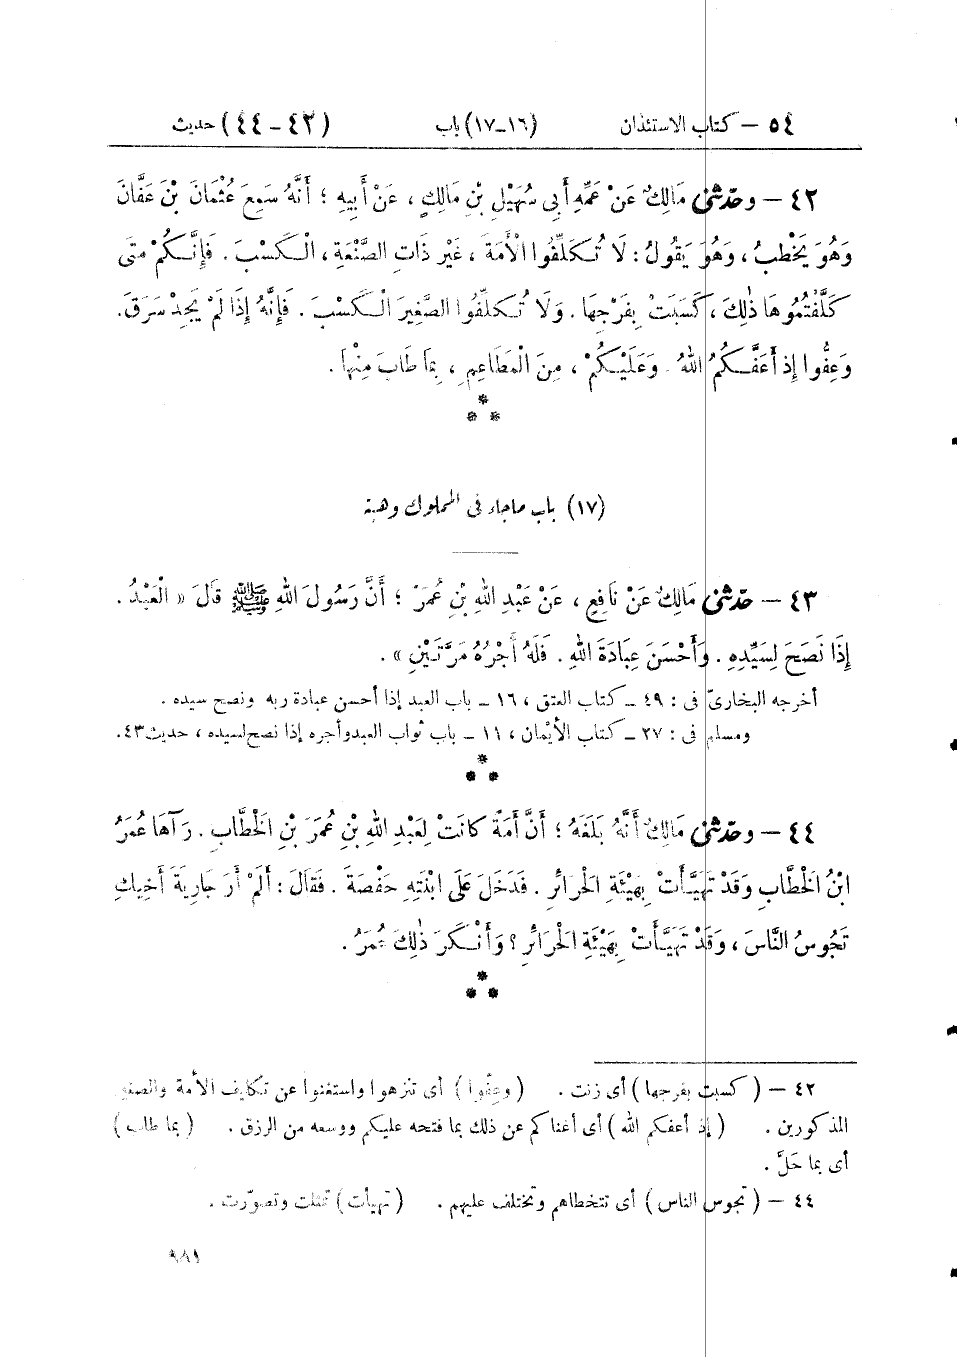 ٥٤ – كتاب الاستئذان (١٦–١٧) باب (٤٢ – ٤٤) حديث
٤٢ – وحدّثنى مَالِكٌ عَنْ عَمِّهِ أَبِى سُهَيْلِ بْنِ مَالِكٍ ، عَنْ أَبِيهِ ؛ أَنَّهُ سَمِعَ عُثْمَانَ بْنَ عَفَّانَ
وَهُوَ يَخْطُبُ ، وَهُوَ يَقُولُ : لَا تُكَلِّفُوا الْأَمَةَ ، غَيْرَ ذَاتِ الصَّنْعَةِ ، الْكَسْبَ . فَإِنَّكُمْ مَتَى
كَلَّفْتُمُوهَا ذٰلِكَ ، كَسَبَتْ بِفَرْجِهَا . وَلَا تُكَلِّفُوا الصَّغِيرَ الْكَسْبَ . فَإِنَّهُ إِذَا لَمْ يَجِدْ سَرَقَ .
وَعِفُّوا إِذْ أَعَفَّكُمُ اللهُ . وَعَلَيْكُمْ ، مِنَ الْمَطَاعِمِ ، بِمَا طَابَ مِنْهَا .
*
* *
(١٧) باب ماجاء فى المملوك وهبة
٤٣ – حدّثنى مَالِكٌ عَنْ نَافِعٍ ، عَنْ عَبْدِ اللهِ بْنِ عُمَرَ ؛ أَنَّ رَسُولَ اللهِ ﷺ قَالَ « الْعَبْدُ .
إِذَا نَصَحَ لِسَيِّدِهِ . وَأَحْسَنَ عِبَادَةَ اللهِ . فَلَهُ أَجْرُهُ مَرَّتَيْنِ » .
أخرجه البخارىّ فى : ٤٩ – كتاب العتق ، ١٦ – باب العبد إذا أحسن عبادة ربه ونصح سيده .
ومسلم فى : ٢٧ – كتاب الأيْمان ، ١١ – باب ثواب العبد وأجره إذا نصح لسيده ، حديث ٤٣.
*
* *
٤٤ – وحدّثنى مَالِكٌ أَنَّهُ بَلَغَهُ ؛ أَنَّ أَمَةً كَانَتْ لِعَبْدِ اللهِ بْنِ عُمَرَ بْنِ الْخَطَّابِ . رَآهَا عُمَرُ
ابْنُ الْخَطَّابِ وَقَدْ تَهَيَّأَتْ بِهَيْئَةِ الْحَرَائِرِ . فَدَخَلَ عَلَى ابْنَتِهِ حَفْصَةَ . فَقَالَ : أَلَمْ أَرَ جَارِيَةَ أَخِيكِ
تَجُوسُ النَّاسَ ، وَقَدْ تَهَيَّأَتْ بِهَيْئَةِ الْحَرَائِرِ ؟ وَأَنْكَرَ ذٰلِكَ عُمَرُ .
*
* *
٤٢ – ( كسبت بفرجها ) أى زنت . ( وعِفّوا ) أى تنزهوا واستغنوا عن تكليف الأمة والصغير
المذكورين . ( إذ أعفكم الله ) أى أغناكم عن ذلك بما فتحه عليكم ووسعه من الرزق . ( بما طاب )
أى بما حَلَّ .
٤٤ – ( تجوس الناس ) أى تتخطاهم وتختلف عليهم . ( تهيأت ) تمثلت وتصوّرت .
٩٨١